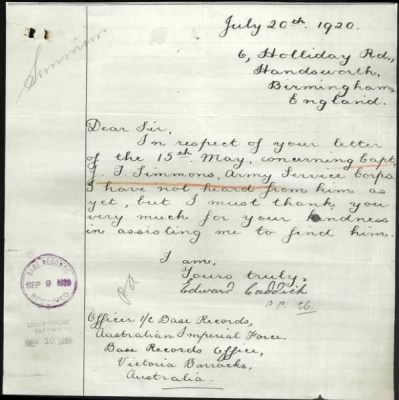 July 20th. 1920.
6, Holliday Rd.,
Handsworth,
Birmingham,
England.
Simmons
Dear Sir,
In respect of your letter
of the 15th. May, concerning Capt.
Simmons, Army Service Corps
I have not heard from him as
yet, but I must thank you
very much for your kindness
in assisting me to find him.
I am,
Yours truly,
Edward
BASE RECORDS
SEP 9 1920
RECEIVED
Officer i/c Base Records,
Australian Imperial Force.
Base Records Office,
Victoria Barracks,
Australia.
SEP 10 1920